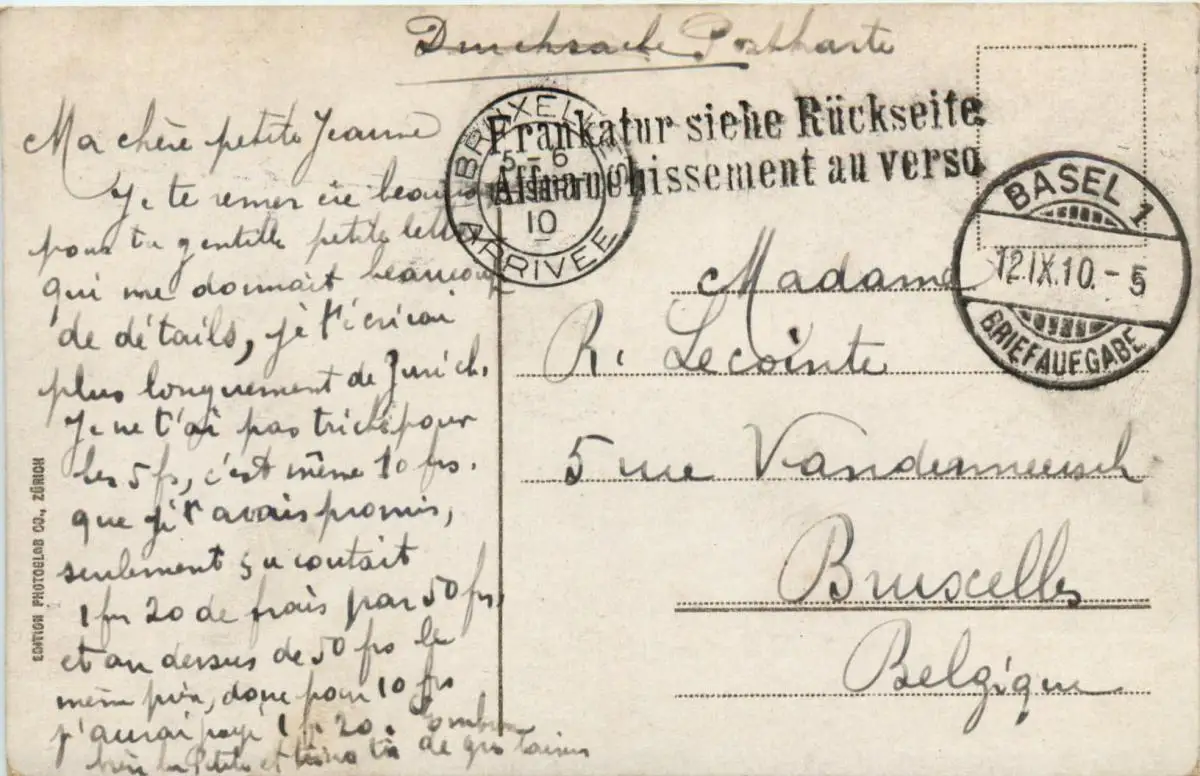 Drucksache Postkarte
Frankatur siehe Rückseite
Affranchissement au verso
BRUXELLES
5-6
10
ARRIVEE
BASEL 1
12.IX.10.-5
BRIEFAUFGABE
Ma chère petite Jeanne
Je te remercie beaucoup
pour ta gentille petite lettre
qui me donnait beaucoup
de détails, je t'écrirai
plus longuement de Zurich.
Je ne t'ai pas triché pour
les 5 frs, c'est même 10 frs.
que je t'avais promis,
seulement ça coutait
1 fr 20 de frais par 50 frs,
et au dessus de 50 frs le
même prix, donc pour 10 frs
j'aurai payé 1 fr 20.
bien la Petite et de gros baisers
Madame
R. Lecointe
5 rue Vandermeersch
Bruxelles
Belgique
EDITION PHOTOGLOB CO., ZÜRICH